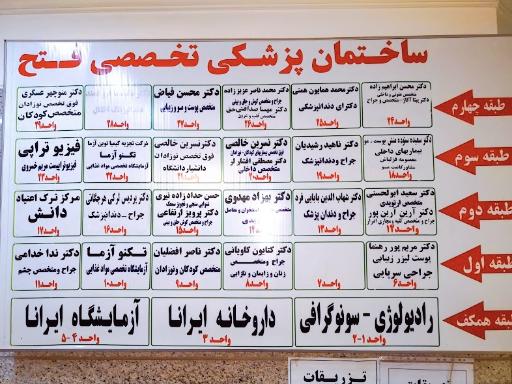 ساختمان پزشکی تخصصی فتح
طبقه چهارم
دکتر محسن ابراهیم زاده
واحد۲۴
دکترمحمد همایون همتی
دکترای دندانپزشکی
واحد۲۵
دکتر محمد ناصر عزیز زاده
واحد۲۶
دکتر محسن فیاض
متخصص پوست و مو و زیبایی
واحد۲۷
واحد۲۸
دکتر منوچهر عسکری
فوق تخصص نوزادان
متخصص کودکان
واحد۲۹
طبقه سوم
بیماریهای داخلی
واحد۱۸
دکتر ناهید رشیدیان
جراح ودندانپزشک
واحد۱۹
دکتر نسرین خالصی
دکتر مصطفی افشار
متخصص داخلی
واحد۲۰
دکترنسرین خالصی
فوق تخصص نوزادان
دانشیار دانشگاه
واحد۲۱
شرکت تجزیه کیمیا نوین آزما
تکنو آزما
آزمایشگاه تخصصی مواد غذایی
واحد۲۲
فیزیو تراپی
فیزیوتراپیست مریم خسروی
واحد۲۳
طبقه دوم
دکتر سعید ابوالحسنی
متخصص ارتوپدی
دکتر آرین آرین پور
واحد۱۲
دکتر شهاب الدین بابایی فرد
جراح و دندان پزشک
واحد۱۳
دکتر بهزاد مهدوی
واحد۱۴
حسن حدادزاده نیری
دکتر پرویز ارتفاعی
واحد۱۵
دکتر پردیس ترکی هرچگانی
جراح - دندانپزشک
واحد۱۶
مرکز ترک اعتیاد
دانش
واحد۱۷
طبقه اول
دکتر مریم پور رهنما
پوست لیزر زیبایی
جراحی سرپایی
واحد۶
واحد۷
دکتر کتایون کاویانی
جراح ومتخصص
زنان وزایمان و نازایی
واحد۸
دکتر ناصر افضلیان
متخصص کودکان ونوزادان
واحد۹
تکنو آزما
آزمایشگاه تخصصی مواد غذایی
واحد۱۰
دکتر ندا خدامی
جراح و متخصص چشم
واحد۱۱
طبقه همکف
رادیولوژی - سونوگرافی
واحد۱-۲
داروخانه ایرانا
واحد ۳
آزمایشگاه ایرانا
واحد ۴-۵
تزریقات